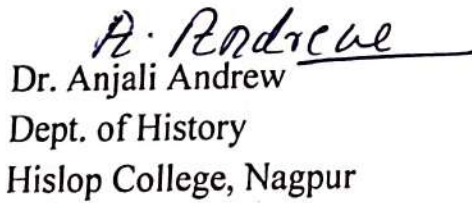 A. Andrew
Dr. Anjali Andrew
Dept. of History
Hislop College, Nagpur